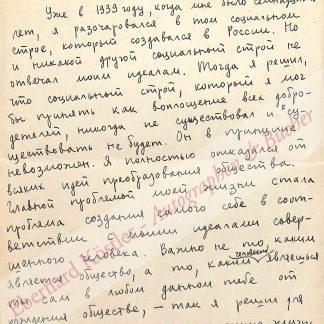 Уже в 1939 году, когда мне было семнадцать
лет, я разочаровался в том социальном
строе, который создавался в России. Но
и никакой другой социальный строй не
отвечал моим идеалам. Тогда я решил,
что социальный строй, который я мог
бы принять как воплощение всех добро-
детелей, никогда не существовал и су-
ществовать не будет. Он в принципе
невозможен. Я полностью отказался от
всяких идей преобразования общества.
Главной проблемой моей жизни стала
проблема создания самого себя в соот-
ветствии с моими идеалами совер-
шенного человека. Важно не то, каким
является общество, а то, каким человеком являешься
ты сам в любом данном тебе от
рождения обществе, – так я решил для
жизнь
Eberhard Köstler - Autographen & Bücher